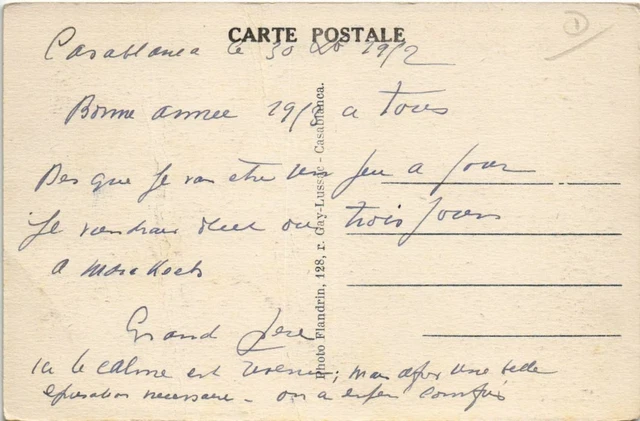 CARTE POSTALE
1
Casablanca le 30 1952
Bonne année à Tous
Des que je vais etre un peu a jour
Je viendrai deux ou trois jours
a Marrakech
Grand Père
ici le calme est revenu; mais après une telle
épuration necessaire - on a enfin compris
Photo Flandrin, 128, r. Gay-Lussac - Casablanca.